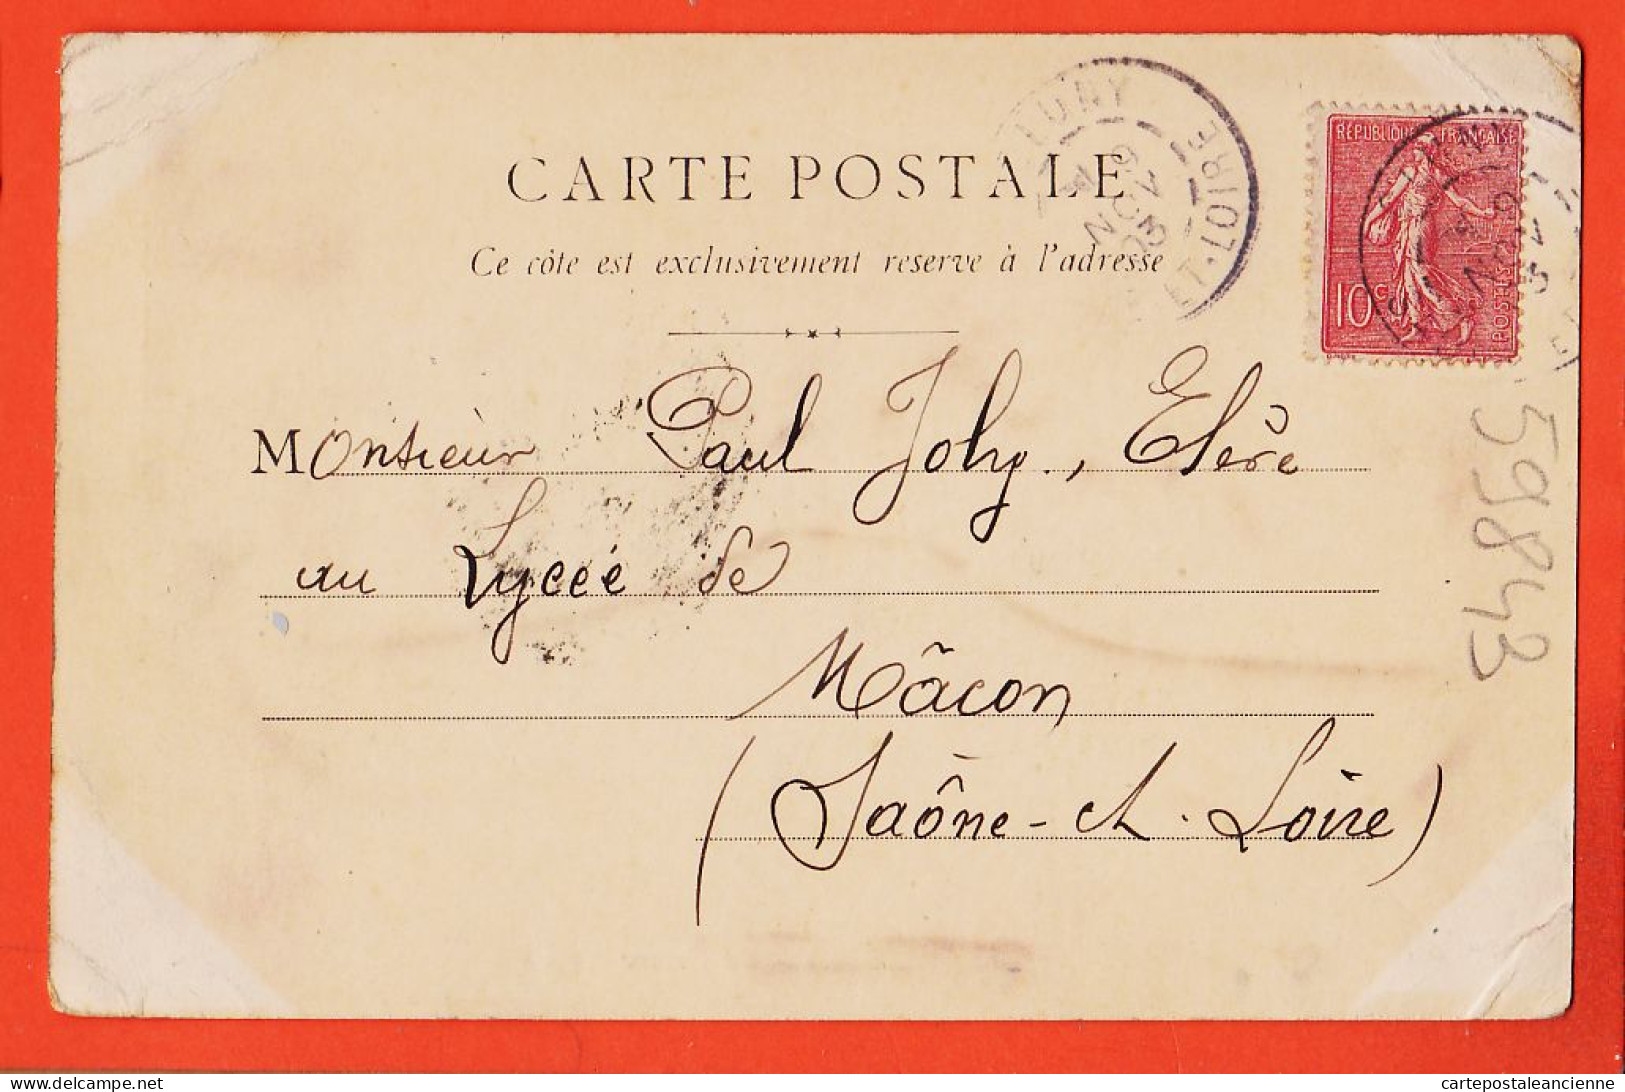 CARTE POSTALE
Ce côte est exclusivement reserve à l'adresse
LUNY
ET-LOIRE
9
NOV
03
RÉPUBLIQUE FRANÇAISE
10c
POSTES
9
NOV
Monsieur Paul Joly, Elève
au Lycée de
Mâcon
(Saône-et-Loire)
59843
delcampe.net
cartepostaleancienne